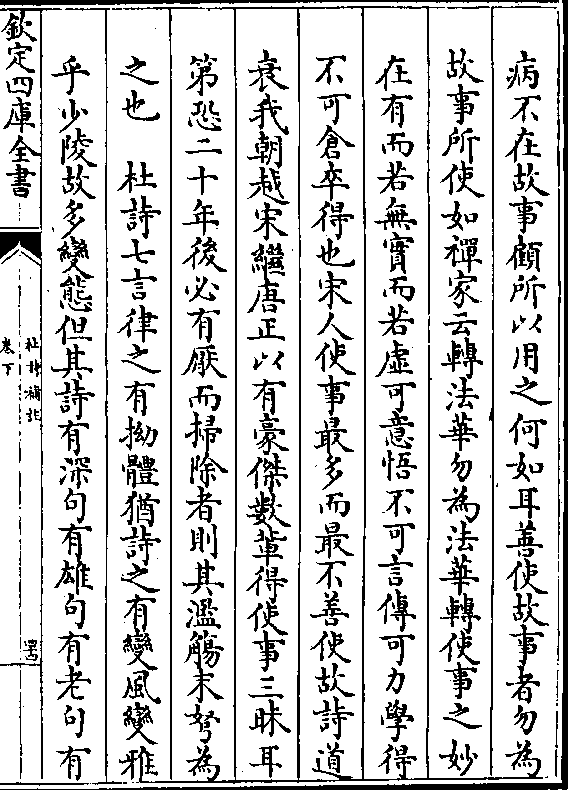 病不在故事顧所以用之何如耳善使故事者勿為
故事所使如禪家云轉法華勿為法華轉使事之妙
在有而若無實而若虛可意悟不可言傳可力學得
不可倉卒得也宋人使事最多而最不善使故詩道
衰我朝越宋繼唐正以有豪傑數輩得使事三昧耳
第恐二十年後必有厭而掃除者則其濫觴末弩為
之也　杜詩七言律之有拗體猶詩之有變風變雅
乎少陵故多變態但其詩有深句有雄句有老句有
欽定四庫全書
杜詩補註
卷下